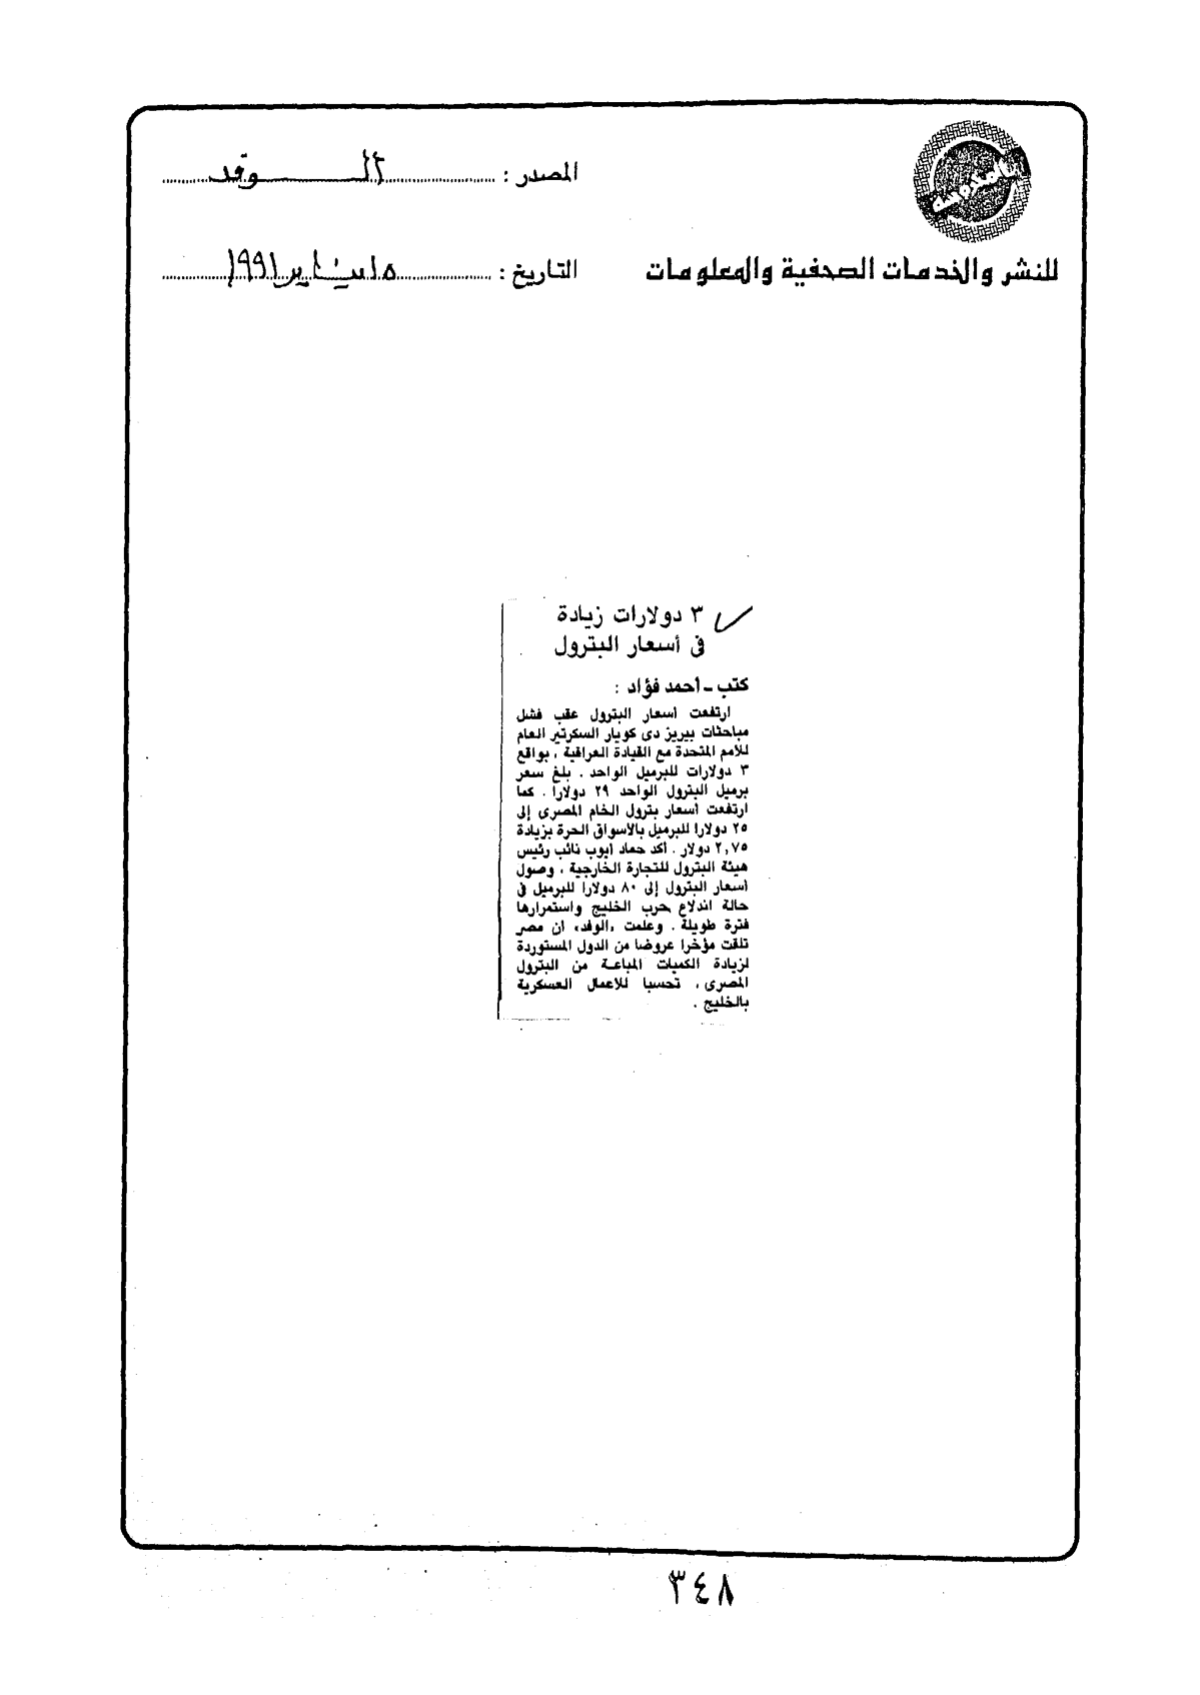 المصدر : الـــوفد
للنشر والخدمات الصحفية والمعلومات
التاريخ : ١٥ يناير ١٩٩١
٣ دولارات زيادة
فى أسعار البترول
كتب - أحمد فؤاد :
ارتفعت أسعار البترول عقب فشل
مباحثات بيريز دى كويار السكرتير العام
للأمم المتحدة مع القيادة العراقية ، بواقع
٣ دولارات للبرميل الواحد . بلغ سعر
برميل البترول الواحد ٢٩ دولارا . كما
ارتفعت أسعار بترول الخام المصرى إلى
٢٥ دولارا للبرميل بالأسواق الحرة بزيادة
٢,٧٥ دولار . أكد حماد أيوب نائب رئيس
هيئة البترول للتجارة الخارجية ، وصول
أسعار البترول إلى ٨٠ دولارا للبرميل فى
حالة اندلاع حرب الخليج واستمرارها
فترة طويلة . وعلمت «الوفد» ان مصر
تلقت مؤخرا عروضا من الدول المستوردة
لزيادة الكميات المباعة من البترول
المصرى ، تحسبا للاعمال العسكرية
بالخليج .
٣٤٨